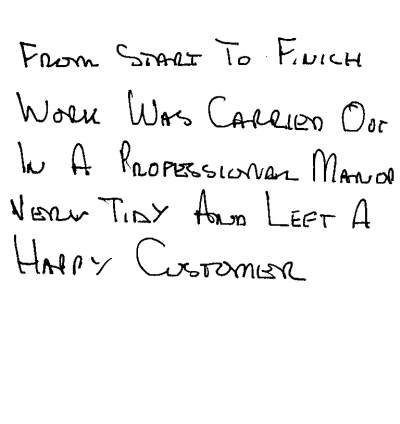 From Start To Finich
Work Was Carried Out
In A Propessional Manor
Very Tidy And Left A
Happy Customer